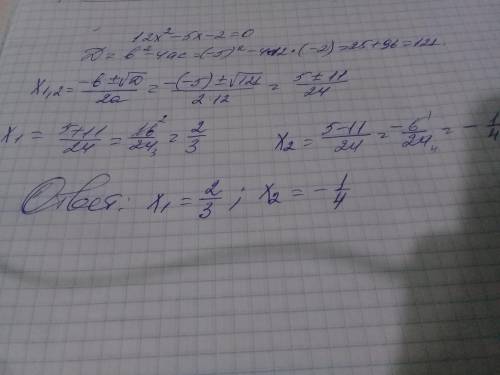 12x² - 5x - 2 = 0
D = b² - 4ac = (-5)² - 4·12·(-2) = 25 + 96 = 121.
x₁,₂ = (-b ± √D)/2a = (-(-5) ± √121)/(2·12) = (5 ± 11)/24
x₁ = (5 + 11)/24 = 16²/24₃ = 2/3    x₂ = (5 - 11)/24 = -6¹/24₄ = -1/4
Ответ: x₁ = 2/3 ; x₂ = -1/4